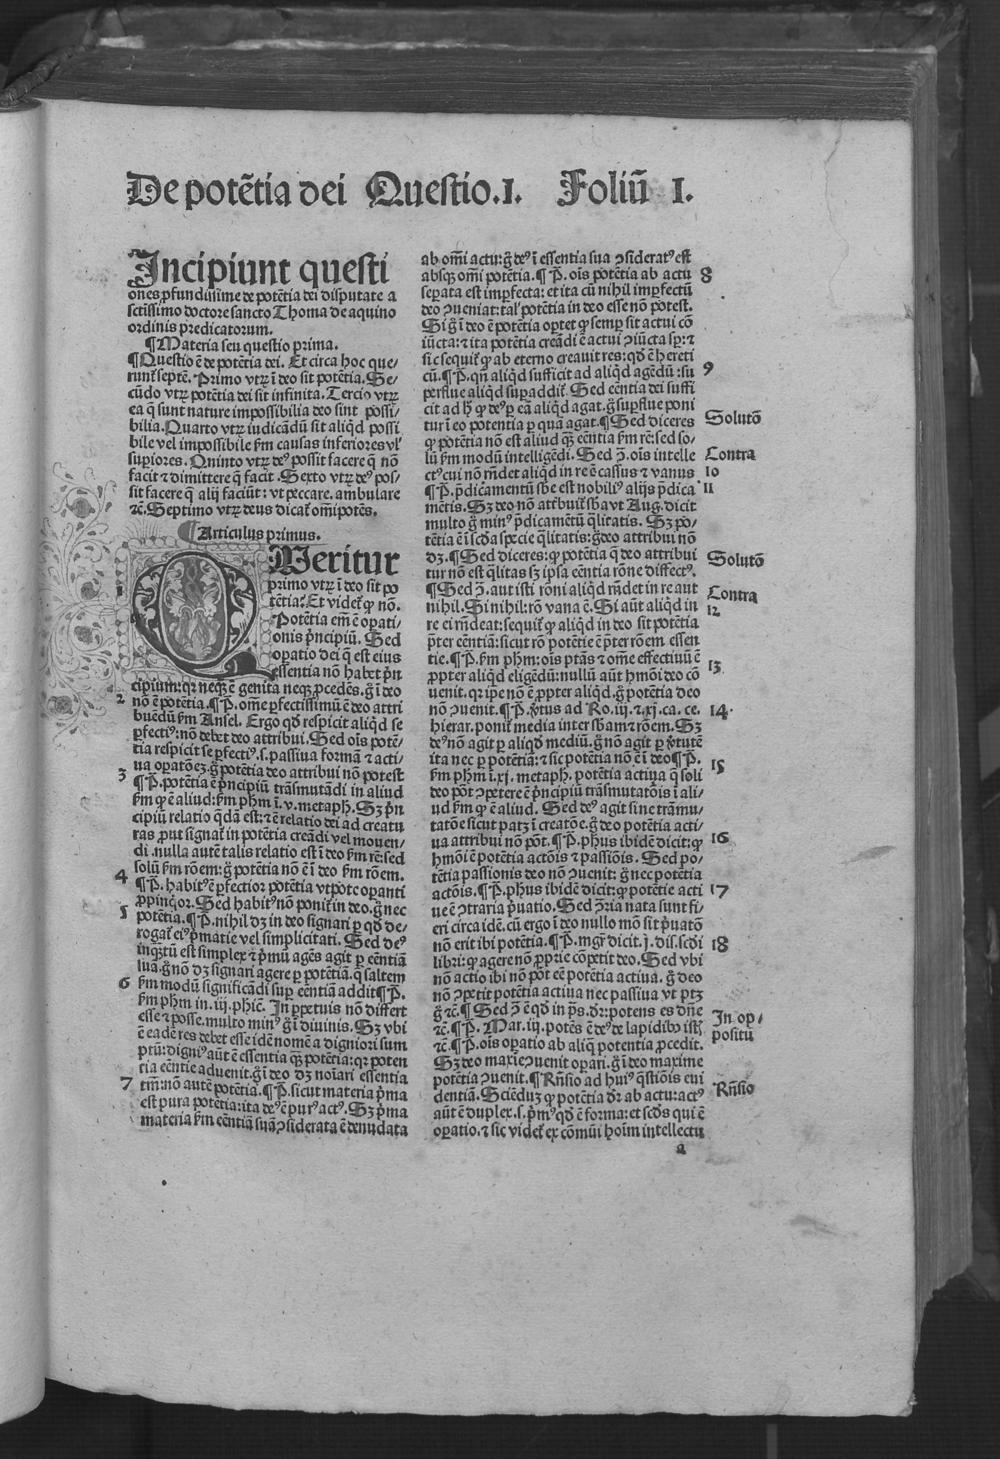 De potẽtia dei Questio.1. Foliũ 1.
Incipiunt questi
ones ꝓfundissime de potẽtia dei disputate a
sctissimo doctore sancto Thoma de aquino
ordinis predicatorum.
¶Materia seu questio prima.
¶Questio ẽ de potẽtia dei. Et circa hoc que-
runt septẽ. Primo vtrꝫ ĩ deo sit potẽtia. Se-
cũdo vtrꝫ potẽtia dei sit infinita. Tercio vtrꝫ
ea q̃ sunt nature impossibilia deo sint possi-
bilia. Quarto vtrꝫ iudicãdũ sit aliq̃d possi
bile vel impossibile ẜm causas inferiores vl'
suꝑiores. Quinto vtrꝫ deꝰ possit facere q̃ nõ
facit ⁊ dimittere q̃ facit. Sexto vtrꝫ deꝰ pos-
sit facere q̃ alij faciũt: vt peccare. ambulare
⁊c̃. Septimo vtrꝫ deus dicat̃ om̃ipotẽs.
¶Articulus primus.
QUeritur
primo vtrꝫ ĩ deo sit po
tẽtia. Et videt̃ ꝙ nõ.
Potẽtia em̃ ẽ oꝑati-
onis p̃ncipiũ. Sed
oꝑatio dei q̃ est eius
essentia nõ habet p̃n
cipium: qꝛ neqꝫ ẽ genita neqꝫ ꝓcedẽs. g̃ ĩ deo
2 nõ ẽ potẽtia. ¶P̃. om̃e ꝑfectissimũ ẽ deo attri
buendũ ẜm Ansel. Ergo qd̃ respicit aliq̃d se
ꝑfectiꝰ: nõ debet deo attribui. Sed oĩs potẽ-
tia respicit se ꝑfectiꝰ. s. passiua formã ⁊ acti-
ua oꝑatõeꝫ. g̃ potẽtia deo attribui nõ potest
3 ¶P̃. potẽtia ẽ p̃ncipiũ trãsmutãdi in aliud
ẜm ꝙ ẽ aliud: ẜm phm̃ ĩ. v. metaph. Sꝫ p̃n
cipiũ relatio q̃dã est: ⁊ ẽ relatio dei ad creatu
ras ꝓut signat̃ in potẽtia creãdi vel mouen-
di. nulla autẽ talis relatio est ĩ deo ẜm rẽ: sed
solũ ẜm rõem: g̃ potẽtia nõ ẽ ĩ deo ẜm rõem.
4 ¶P̃. habitꝰ ẽ ꝑfectior potẽtia vtpote oꝑanti
ꝓpinq̃or. Sed habitꝰ nõ ponit̃ in deo. g̃ nec
5 potẽtia. ¶P̃. nihil dꝫ in deo signari ꝑ qd̃ de-
rogat̃ eiꝰ p̃matie vel simplicitati. Sed deꝰ
inqꝫtũ est simplex ⁊ p̃mũ agẽs agit ꝑ eẽntiã
suã. g̃ nõ dꝫ signari agere ꝑ potẽtiã. q̃ saltem
6 ẜm modũ significãdi suꝑ eẽntiã addit ¶P̃.
ẜm phm̃ in. iij. phic̃. In ꝑpetuis nõ differt
esse ⁊ posse. multo minꝰ g̃ ĩ diuinis. Sꝫ vbi
ẽ eadẽ res debet esse idẽ nomẽ a digniori sum
ptũ: digniꝰ aũt ẽ essentia qꝫ̃ potẽtia: qꝛ poten
tia eẽntie aduenit. g̃ ĩ deo dꝫ noĩari essentia
7 tm̃: nõ autẽ potẽtia. ¶P̃. sicut materia p̃ma
est pura potẽtia: ita deꝰ ẽ purꝰ actꝰ. Sꝫ p̃ma
materia ẜm eẽntiã suã ꝯsiderata ẽ denudata
ab om̃i actu: g̃ deꝰ ĩ essentia sua ꝯsideratꝰ est
absqꝫ om̃i potẽtia. ¶P̃. oĩs potẽtia ab actu 8
seꝑata est imꝑfecta: et ita cũ nihil imꝑfectũ
deo ꝯueniat: tal' potẽtia in deo esse nõ potest.
Si g̃ ĩ deo ẽ potẽtia oꝑtet ꝙ semꝑ sit actui cõ
iũcta: ⁊ ita potẽtia creãdi ẽ actui ꝯiũcta sꝑ: ⁊
sic sequit̃ ꝙ ab eterno creauit res: qd̃ ẽ hereti
cũ. ¶P̃. qñ aliq̃d sufficit ad aliq̃d agẽdũ: su 9
perflue aliq̃d suꝑaddit̃. Sed eẽntia dei suffi
cit ad hꝫ ꝙ deꝰ ꝑ eã aliq̃d agat. g̃ suꝑflue poni
tur ĩ eo potentia ꝑ quã agat. ¶Sed diceres Solutõ
ꝙ potẽtia nõ est aliud qꝫ̃ eẽntia ẜm rẽ: sed so-
lũ ẜm modũ intelligẽdi. Sed ꝯ̃. oĩs intelle Contra
ctꝰ cui nõ rñdet aliq̃d in re ẽ cassus ⁊ vanus 10
¶P̃. p̃dicamentũ sb̃e est nobiliꝰ alijs p̃dica 11
mẽtis. Sꝫ deo nõ attribuit̃ sb̃a vt Aug. dicit
multo g̃ minꝰ p̃dicamẽtũ q̃litatis. Sꝫ po-
tẽtia ẽ ĩ scd̃a specie q̃litatis: g̃ deo attribui nõ
dꝫ. ¶Sed diceres: ꝙ potẽtia q̃ deo attribui Solutõ
tur nõ est q̃litas sꝫ ipsa eẽntia rõne differẽs.
¶Sed ꝯ̃. aut isti rõni aliq̃d rñdet in re aut Contra
nihil. Si nihil: rõ vana ẽ. Si aũt aliq̃d in 12
re ei rñdeat: sequit̃ ꝙ aliq̃d in deo sit potẽtia
p̃ter eẽntiã: sicut rõ potẽtie ẽ p̃ter rõem essen
tie. ¶P̃. ẜm phm̃: oĩs ptãs ⁊ om̃e effectiuũ ẽ 13
ꝓpter aliq̃d eligẽdũ: nullũ aũt hmõi deo cõ
uenit. qꝛ ipe nõ ẽ ꝓpter aliq̃d. g̃ potẽtia deo
nõ ꝯuenit. ¶P̃. ṽtus ad Ro. iij. ⁊. xj. ca. ce. 14
hierar. ponit̃ media inter sb̃am ⁊ rõem. Sꝫ
deꝰ nõ agit ꝑ aliq̃d mediũ. g̃ nõ agit ꝑ ṽtutẽ
ita nec ꝑ potẽtiã: ⁊ sic potẽtia nõ ẽ ĩ deo ¶P̃. 15
ẜm phm̃ ĩ. xj. metaph. potẽtia actiua q̃ soli
deo põt ꝯpetere ẽ p̃ncipiũ trãsmutatõis ĩ ali-
ud ẜm ꝙ ẽ aliud. Sed deꝰ agit sine trãmu-
tatõe sicut patꝫ ĩ creatõe. g̃ deo potẽtia acti-
ua attribui nõ põt. ¶P̃. phus ibidẽ dicit: ꝙ 16
hmõi ẽ potẽtia actõis ⁊ passiõis. Sed po-
tẽtia passionis deo nõ ꝯuenit: g̃ nec potẽtia
actõis. ¶P̃. phus ibidẽ dicit: ꝙ potẽtie acti 17
ue ẽ ꝯtraria p̃uatio. Sed ꝯ̃ria nata sunt fi-
eri circa idẽ. cũ ergo ĩ deo nullo mõ sit p̃uatõ
nõ erit ibi potẽtia. ¶P̃. mgr̃ dicit. j. dis. scd̃i 18
libri: ꝙ agere nõ ꝓprie cõpetit deo. Sed vbi
nõ actio ibi nõ põt eẽ potẽtia actiua. g̃ deo
nõ ꝯpetit potẽtia actiua nec passiua vt ptꝫ
g̃ ⁊c̃. ¶Sed ꝯ̃ ẽ qd̃ in p̃s. dr̃: potens es dñe In op-
⁊c̃. ¶P̃. Mat. iij. potẽs ẽ deꝰ de lapidibꝰ istꝭ positũ
⁊c̃. ¶P̃. oĩs oꝑatio ab aliq̃ potentia ꝓcedit.
Sꝫ deo maxie ꝯuenit oꝑari. g̃ ĩ deo maxime
potẽtia ꝯuenit. ¶Rñsio ad huiꝰ q̃stiõis eui Rñsio
dentiã. Sciẽduꝫ ꝙ potẽtia dr̃ ab actu: actꝰ
aũt ẽ duplex. s. p̃mꝰ qd̃ ẽ forma: et scd̃s qui ẽ
oꝑatio. ⁊ sic videt̃ ex cõmũi hoĩm intellectu
a